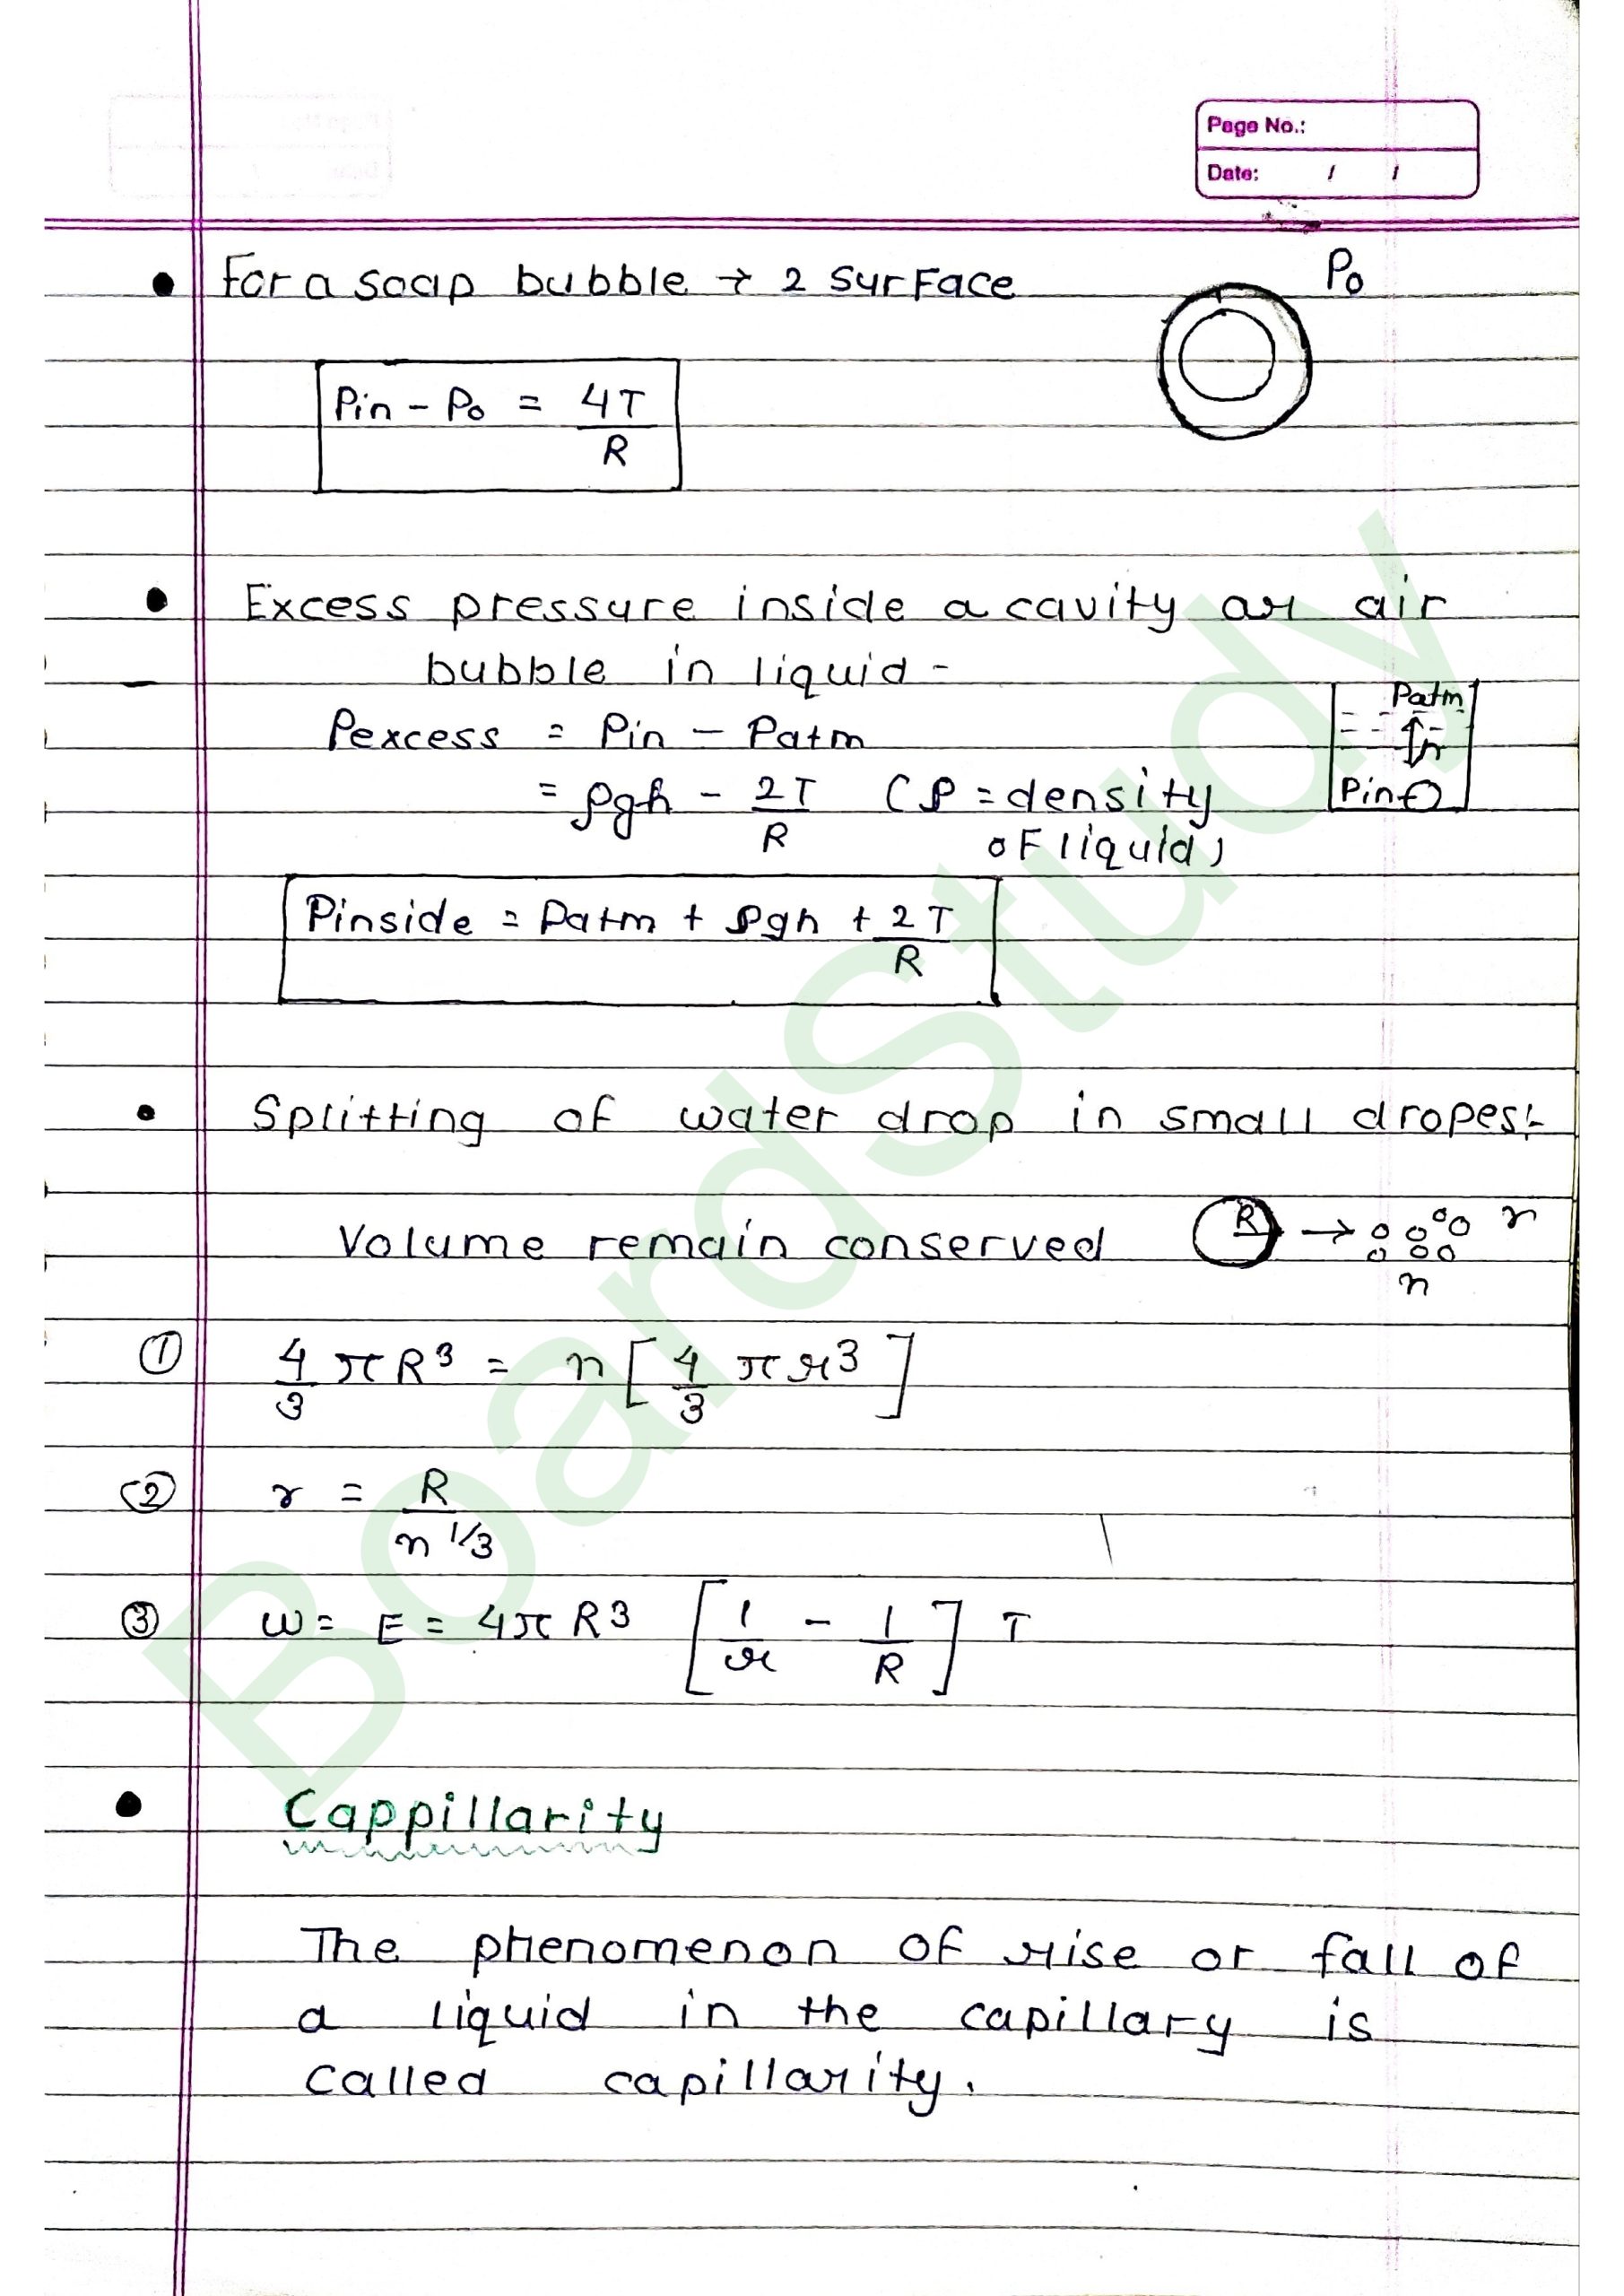 Page No.:
Date: / /
• For a soap bubble → 2 surface
P₀
Pin - P₀ = 4T/R
• Excess pressure inside a cavity or air
bubble in liquid -
Pexcess = Pin - Patm
Patm
h
Pin
= ρgh - 2T/R (ρ = density
of liquid)
Pinside = Patm + ρgh + 2T/R
• Splitting of water drop in small dropes:-
Volume remain conserved R → r
n
① 4/3 πR³ = n[4/3 πr³]
② r = R/n^1/3
③ W = E = 4πR³ [1/r - 1/R] T
• Cappillarity
The phenomenon of rise or fall of
a liquid in the capillary is
called capillarity.
BoardStudy